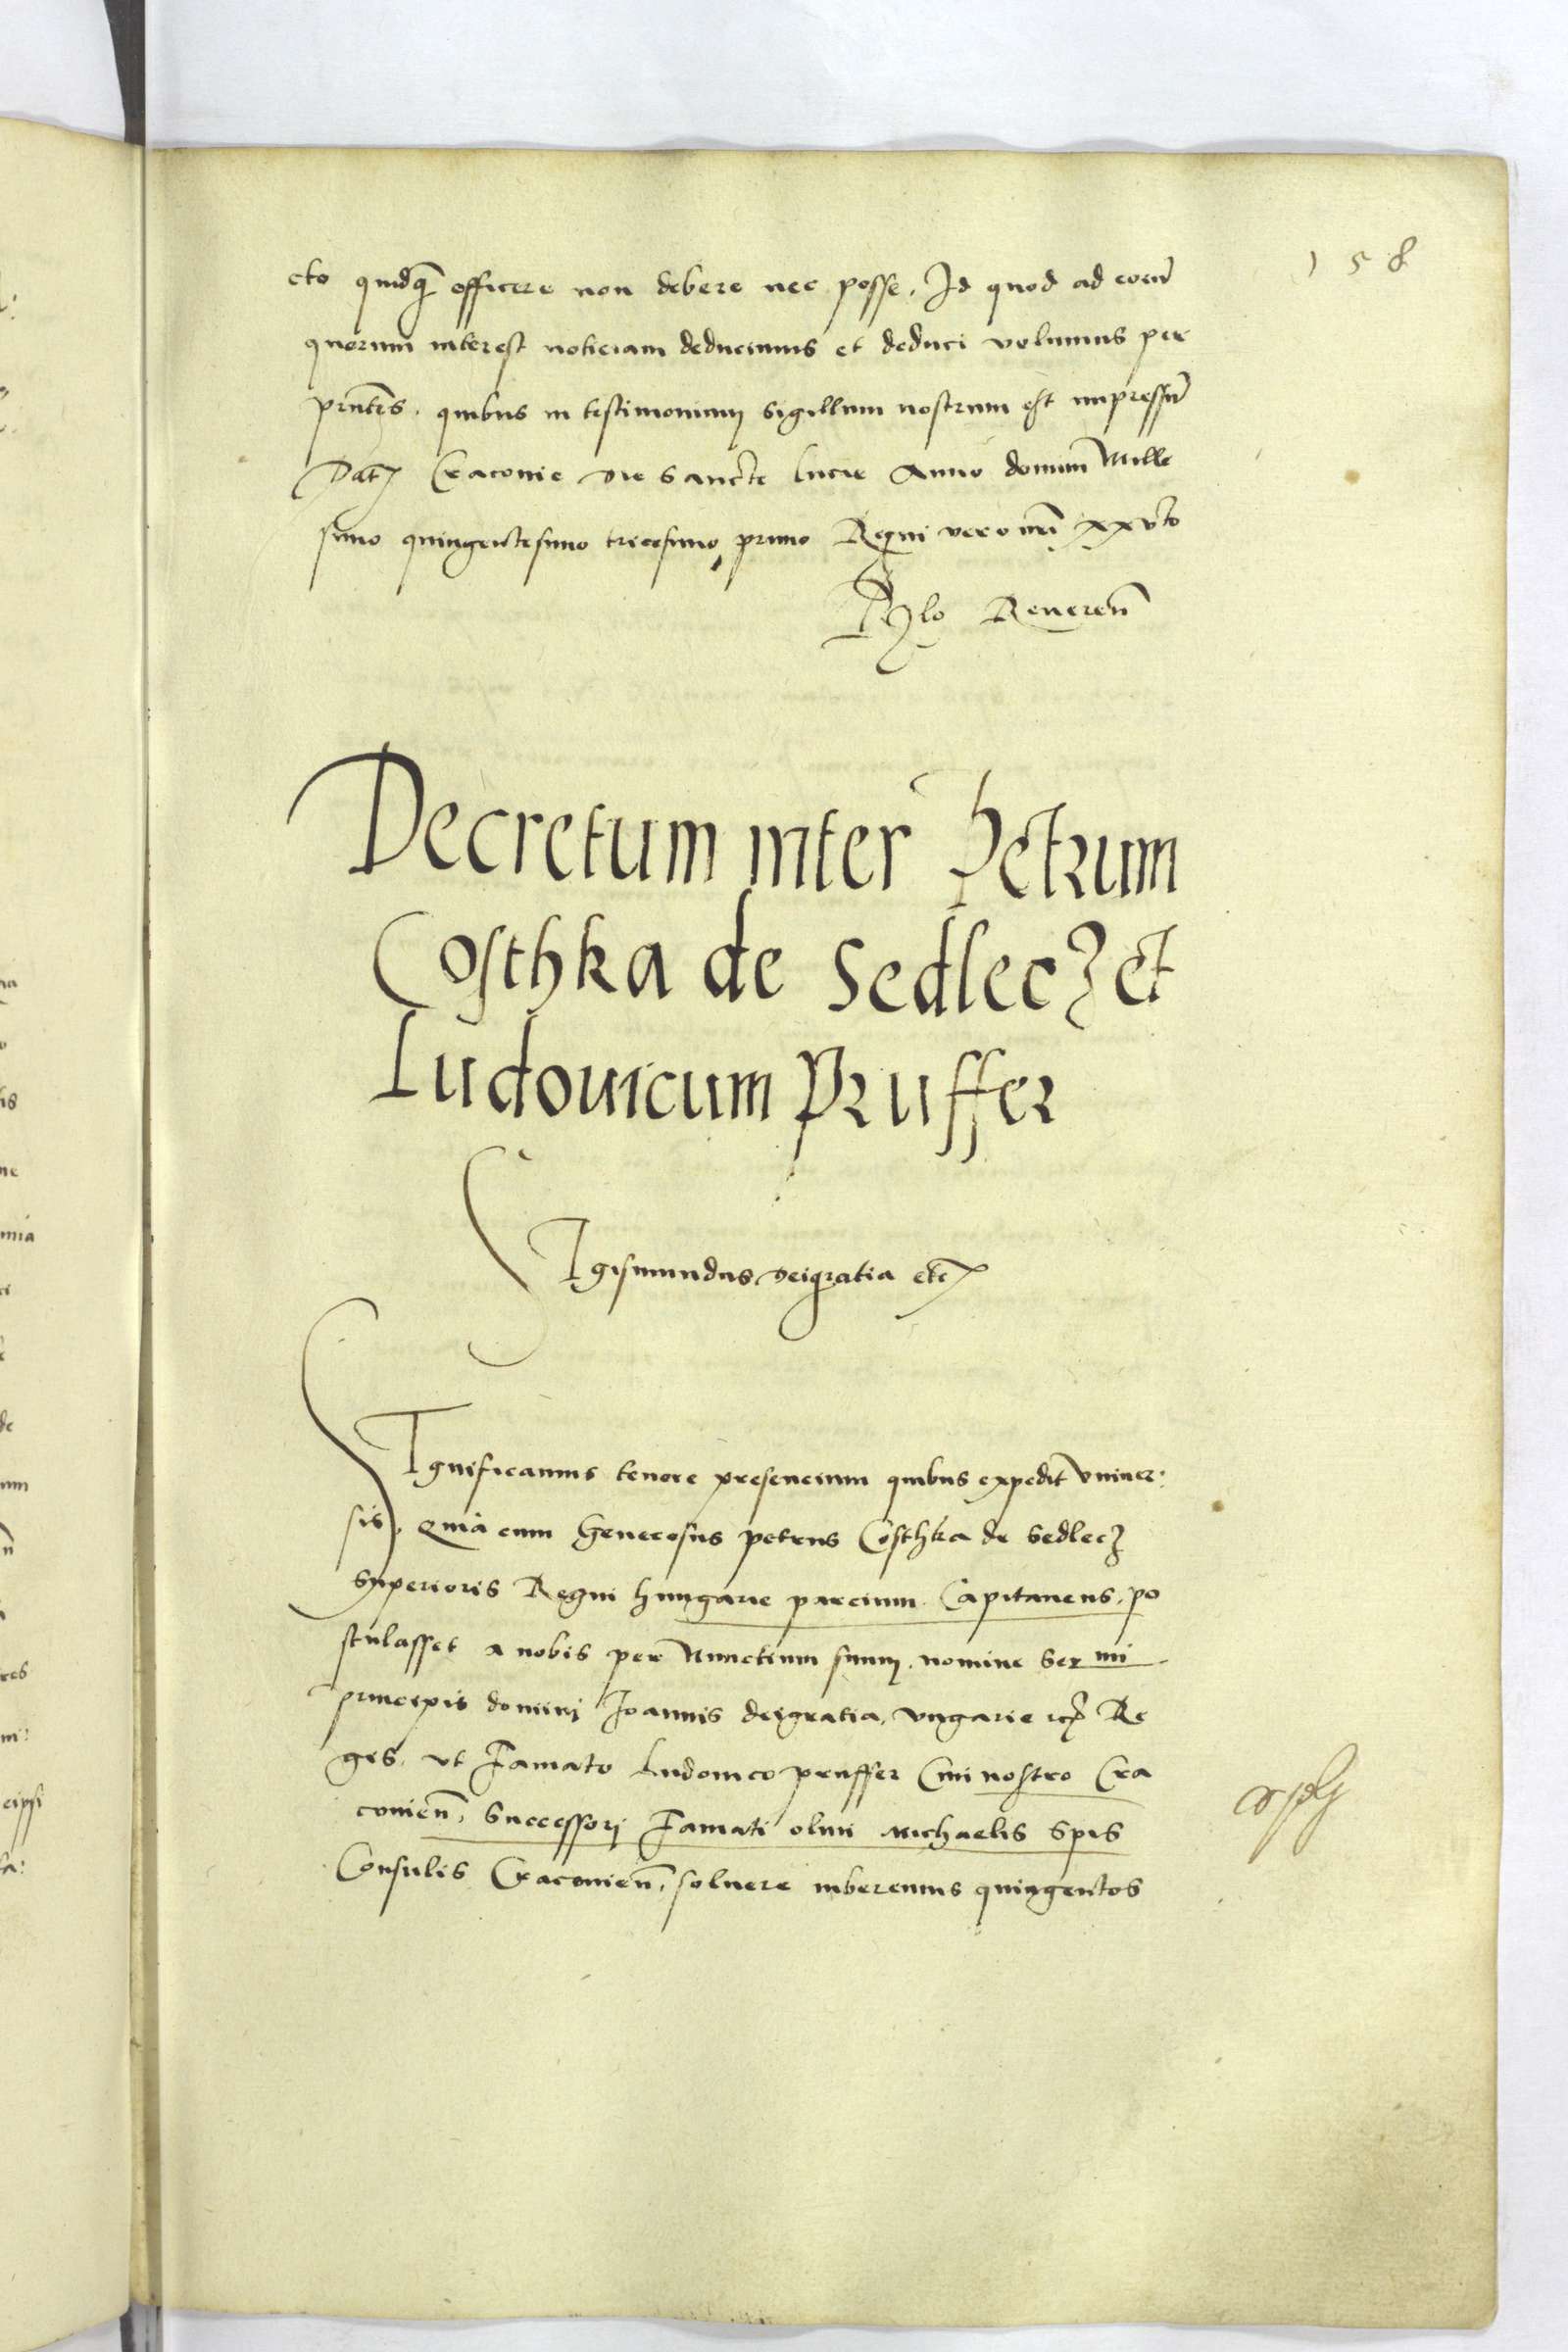 158
cto quidq̃ officere non debere nec posse. Id quod ad eorũ
quorum interest noticiam deducimus et deduci volumus per
pñtes. quibus in testimonium sigillum nostrum est impressũ
Dat̃ Cracovie die Sancte Lucie Anno domini Mille
simo quingentesimo tricesimo primo Regni vero nr̃i xxvto
Rylo Reveren̄
Decretum inter Petrum
Costhka de Sedlecz et
Ludouicum Pruffer
SIgismundus dei gratia etc̃
SIgnificamus tenore presencium quibus expedit vniuer:
sis. Quia cum Generosus petrus Costhka de Sedlecz
Superioris Regni hungarie parcium Capitaneus. po
stulasset a nobis per Nunctium suum. nomine Ser mi
principis domini Joannis dei gratia, vngarie etc̃ Re
gis. vt Famato Ludouico pruffer Ciui nostro Cra
couien̄. Successori Famati olim Michaelis Spis
Consulis Cracouien̄. soluere iuberemus quingentos